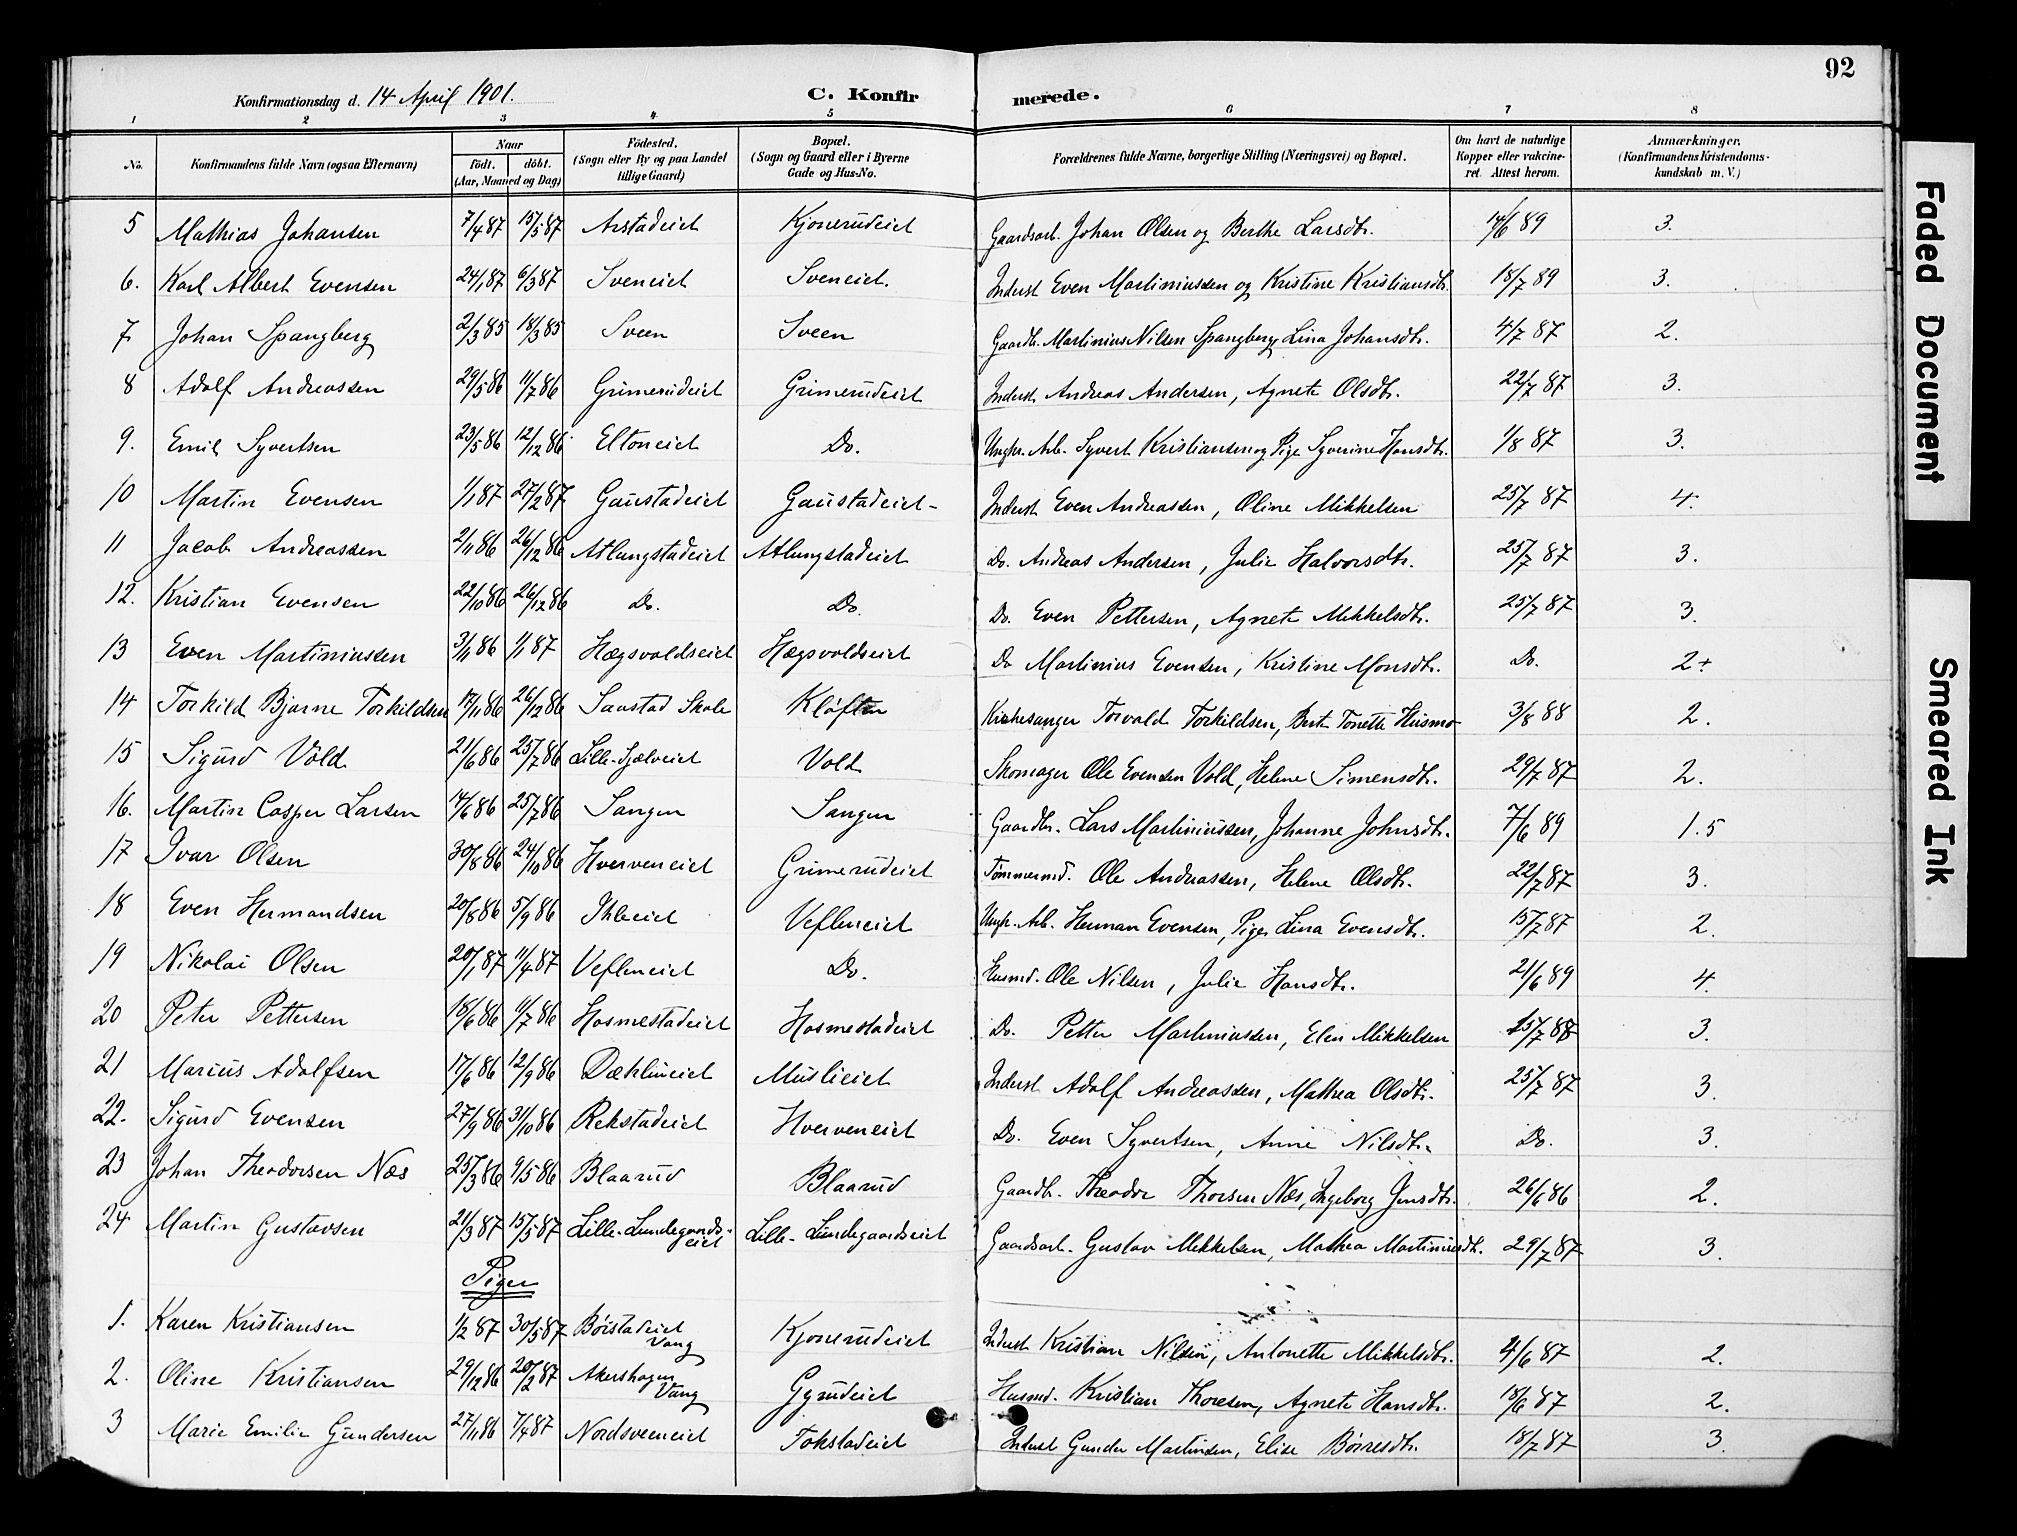 92
Konfirmationsdag d. 14 April 1901. C. Konfir merede.
1 2 3 4 5 6 7 8
No. Konfirmandens fulde Navn (ogsaa Efternavn) Naar födt. döbt. (Aar, Maaned og Dag) Födested. (Sogn eller By og paa Landet tillige Gaard) Bopæl. (Sogn og Gaard eller i Byerne Gade og Hus-No. Forældrenes fulde Navne, borgerlige Stilling (Næringsvei) og Bopæl. Om havt de naturlige Kopper eller vakcineret. Attest herom. Anmærkninger. (Konfirmandens Kristendomskundskab m. V.)
5 Mathias Johansen 7/4 87 15/5 87 Arstadeiet Kjonerudeiet Gaardsarb. Johan Olsen og Berthe Larsdtr. 14/6 89 3.
6. Karl Albert Evensen 24/1 87 6/3 87 Sveneiet Sveneiet. Inderst Even Martiniussen og Kristine Kristiansdtr. 18/7 89 3.
7 Johan Spangberg 2/3 85 18/3 85 Sveen Sveen Gaardbr. Martinius Nilsen Spangberg, Lina Johansdtr. 4/7 87 2.
8 Adolf Andreassen 29/5 86 11/7 86 Grimerudeiet Grimerudeiet Inderst Andreas Andersen, Agnete Olsdtr. 22/7 87 3.
9. Emil Syvertsen 23/5 86 12/12 86 Eltoneiet Do. Ungkr. Arb. Syvert Kristiansen og Pige Syverine Hansdtr. 1/8 87 3.
10 Martin Evensen 1/1 87 27/2 87 Gaustadeiet Gaustadeiet Inderst Even Andreassen, Oline Mikkelsen 25/7 87 4.
11 Jacob Andreassen 2/11 86 26/12 86 Atlungstadeiet Atlungstadeiet Do. Andreas Andersen, Julie Halvorsdtr. 25/7 87 3.
12. Kristian Evensen 22/10 86 26/12 86 Do. Do. Do. Even Pettersen, Agnete Mikkelsdtr. 25/7 87 3.
13 Even Martiniussen 3/11 86 1/1 87 Hægsvoldseiet Hægsvoldseiet Do Martinius Evensen, Kristine Monsdtr. Do. 2+
14 Torkild Bjarne Torkildsen 17/11 86 26/12 86 Saastad Skole Kløften Kirkesanger Torvald Torkildsen, Bert Tonette Husmo 3/8 88 2.
15 Sigurd Vold 21/6 86 25/7 86 Lille-Sjælveiet Vold Skomager Ole Evensen Vold, Helene Simensdtr. 29/7 87 2.
16. Martin Casper Larsen 14/6 86 25/7 86 Sangen Sangen Gaardbr. Lars Martiniussen, Johanne Johnsdtr. 7/6 89 1.5
17 Ivar Olsen 30/8 86 24/10 86 Hverveneiet Grimerudeiet Tømmermd. Ole Andreassen, Helene Olsdtr. 22/7 87 3.
18 Even Hermandsen 20/8 86 5/9 86 Ihleeiet Vefleneiet Ungk. Arb. Herman Evensen, Pige Lina Evensdtr. 15/7 87 2.
19 Nikolai Olsen 20/1 87 11/4 87 Vefleneiet Do. Husmd. Ole Nilsen, Julie Hansdtr. 21/6 89 4.
20 Peter Pettersen 18/6 86 11/7 86 Hosmestadeiet Hosmestadeiet Do. Petter Martiniussen, Elen Mikkelsen 15/7 88 3.
21 Marius Adolfsen 17/6 86 12/9 86 Dæhlineiet Muslieiet Inderst Adolf Andreassen, Mathea Olsdtr. 25/7 87 3.
22. Sigurd Evensen 27/9 86 31/10 86 Rekstadeiet Hverveneiet Do. Even Syvertsen, Anne Nilsdtr. Do. 3.
23 Johan Theodorsen Næs 25/3 86 9/5 86 Blaarud Blaarud Gaardbr. Theodor Thorsen Næs, Ingeborg Jensdtr. 26/6 86 2.
24 Martin Gustavsen 21/3 87 15/5 87 Lille-Lundegaardseiet Lille-Lundegaardseiet Gaardsarb. Gustav Mikkelsen, Mathea Martiniusdtr. 29/7 87 3.
Piger
1. Karen Kristiansen 1/2 87 30/5 87 Børstadeiet Vang Kjonerudeiet Inderst Kristian Nilsen, Antonette Mikkelsdtr. 4/6 87 2.
2. Oline Kristiansen 29/12 86 20/2 87 Akershagen Vang Gyrudeiet Husmd. Kristian Thoresen, Agnete Hansdtr. 18/6 87 2.
3 Marie Emilie Gundersen 27/11 86 7/4 87 Nordsveeneiet Tokstadeiet Inderst Gunder Martinsen, Elise Børresdtr. 18/7 87 3.
Faded Document
Smeared Ink